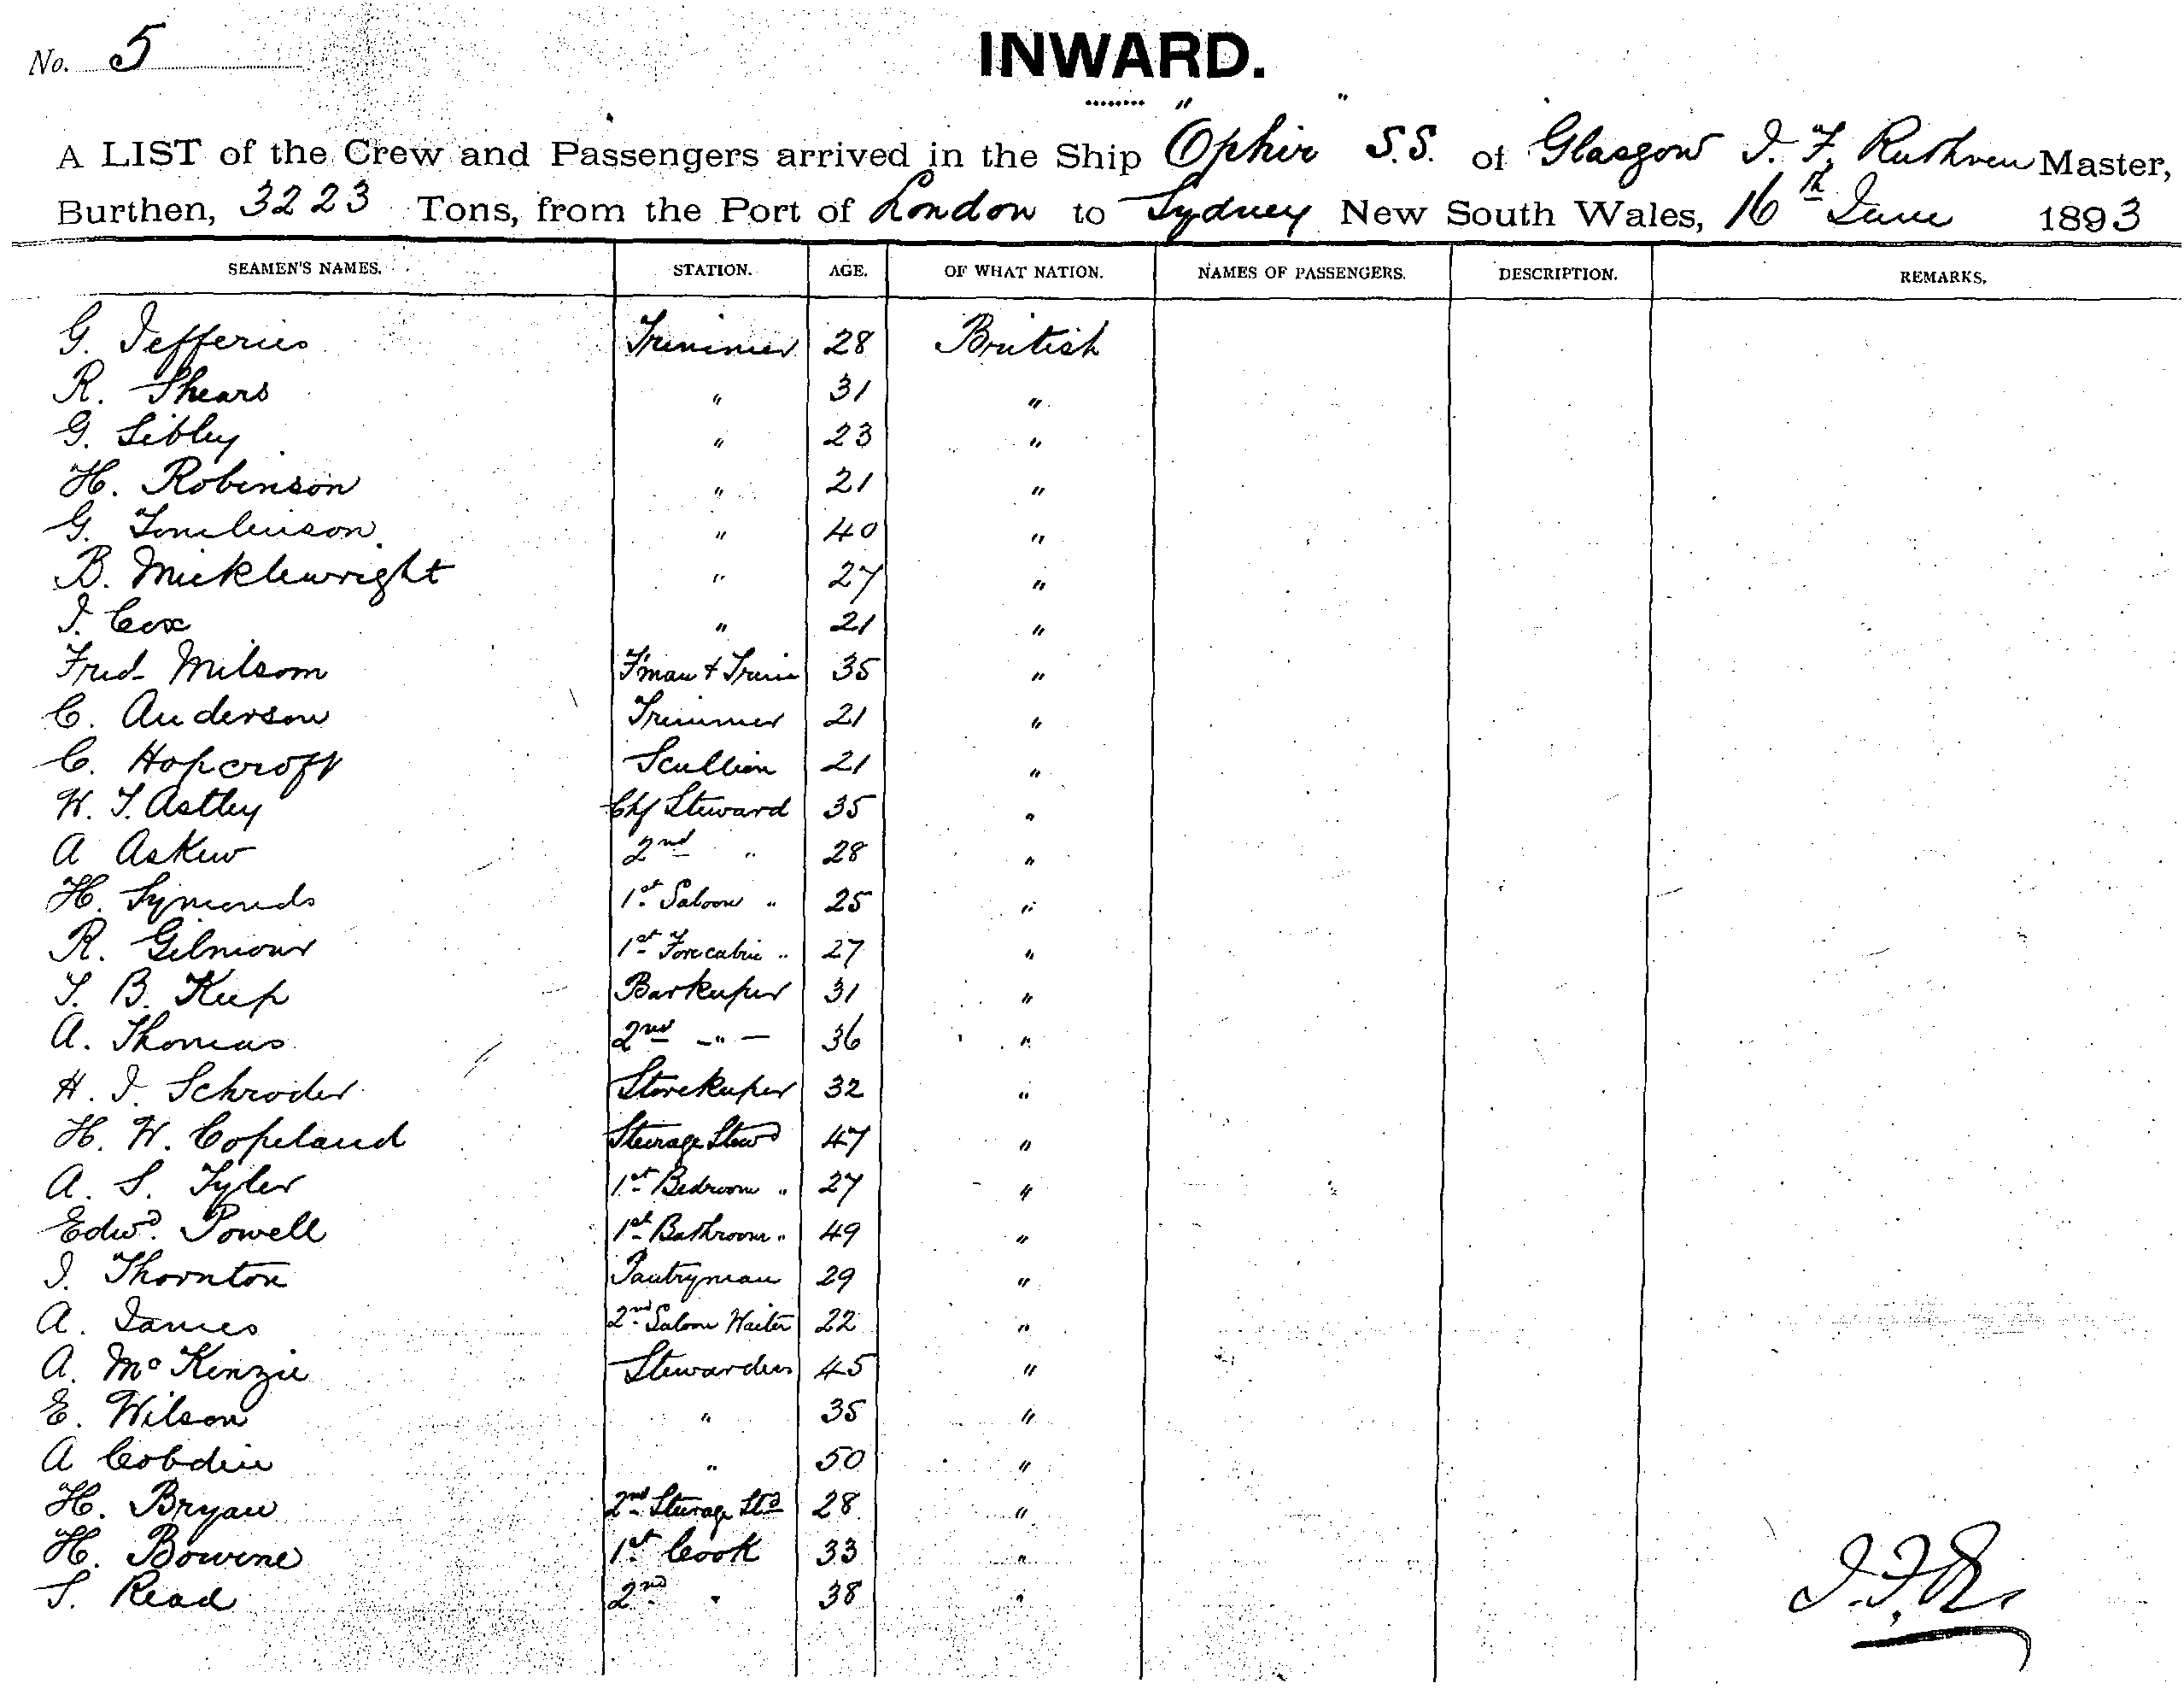 No. 5
INWARD.
A LIST of the Crew and Passengers arrived in the Ship "Ophir" S.S. of Glasgow J. F. Ruthven Master,
Burthen, 3223 Tons, from the Port of London to Sydney New South Wales, 16th June 1893
SEAMEN'S NAMES. STATION. AGE. OF WHAT NATION. NAMES OF PASSENGERS. DESCRIPTION. REMARKS.
G. Jefferies Trimmer 28 British
R. Shears " 31 "
G. Sibley " 23 "
H. Robinson " 21 "
G. Tomlinson " 40 "
B. Micklewright " 27 "
J. Cox " 21 "
Fred Milsom F'man & Trim 35 "
C. Anderson Trimmer 21 "
C. Hopcroft Scullion 21 "
W. T. Astley Chf Steward 35 "
A Askew 2nd " 28 "
H. Symonds 1st Saloon " 25 "
R. Gilmour 1st Forecabin " 27 "
T. B. Keep Barkeeper 31 "
A. Thomas 2nd - " - 36 "
H. J. Schroder Storekeeper 32 "
H. W. Copeland Steerage Stewd 47 "
A. S. Tyler 1st Bedroom " 27 "
Edwd. Powell 1st Bathroom " 49 "
J. Thornton Pantryman 29 "
A. James 2nd Saloon Waiter 22 "
A. McKenzie Stewardess 45 "
E. Wilson " 35 "
A Cobden " 50 "
H. Bryan 2nd Steerage Std 28 "
H. Bowene 1st Cook 33 "
S. Read 2nd " 38 "
J.F.R.